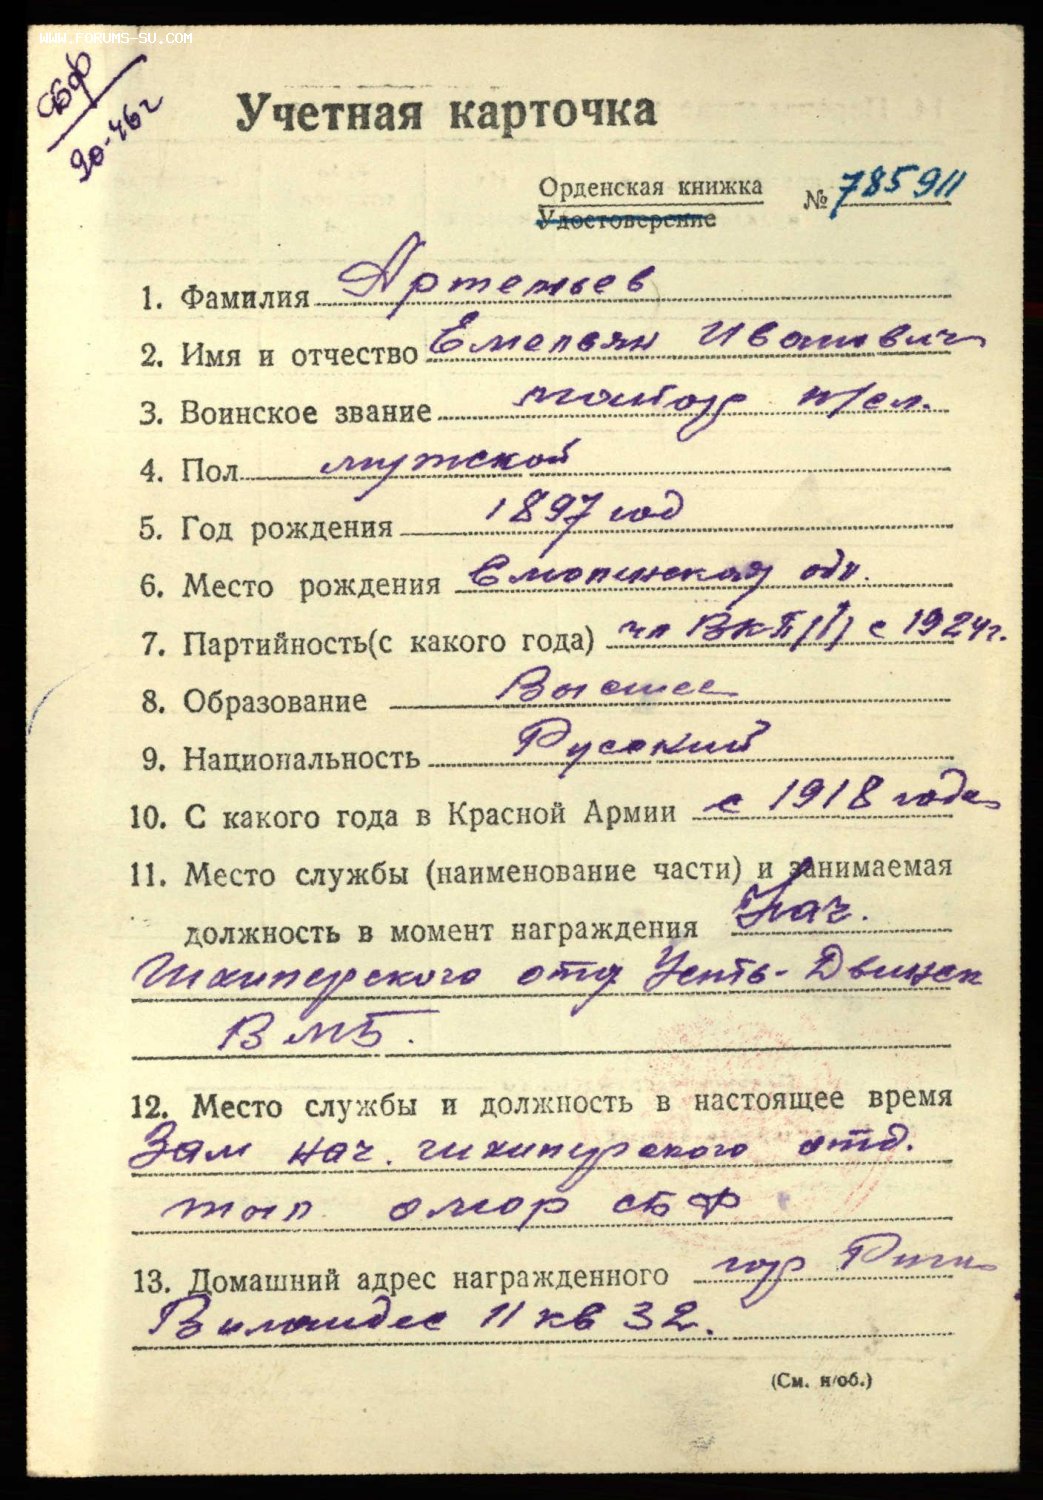 WWW.FORUMS-SU.COM
СБФ
90-46г
Учетная карточка
Орденская книжка
Удостоверение
№ 785911
1. Фамилия Артемьев
2. Имя и отчество Емельян Иванович
3. Воинское звание майор
4. Пол мужской
5. Год рождения 1897 год
6. Место рождения Смоленская обл.
7. Партийность(с какого года) чл ВКП/б/ с 1924г.
8. Образование Высшее
9. Национальность Русский
10. С какого года в Красной Армии с 1918 года
11. Место службы (наименование части) и занимаемая
должность в момент награждения Нач.
Шкиперского отд Усть-Двинск
ВМБ.
12. Место службы и должность в настоящее время
Зам нач. шкиперского отд.
тыл СБФ
13. Домашний адрес награжденного гор Рига
Виландес 11 кв 32.
(См. н/об.)